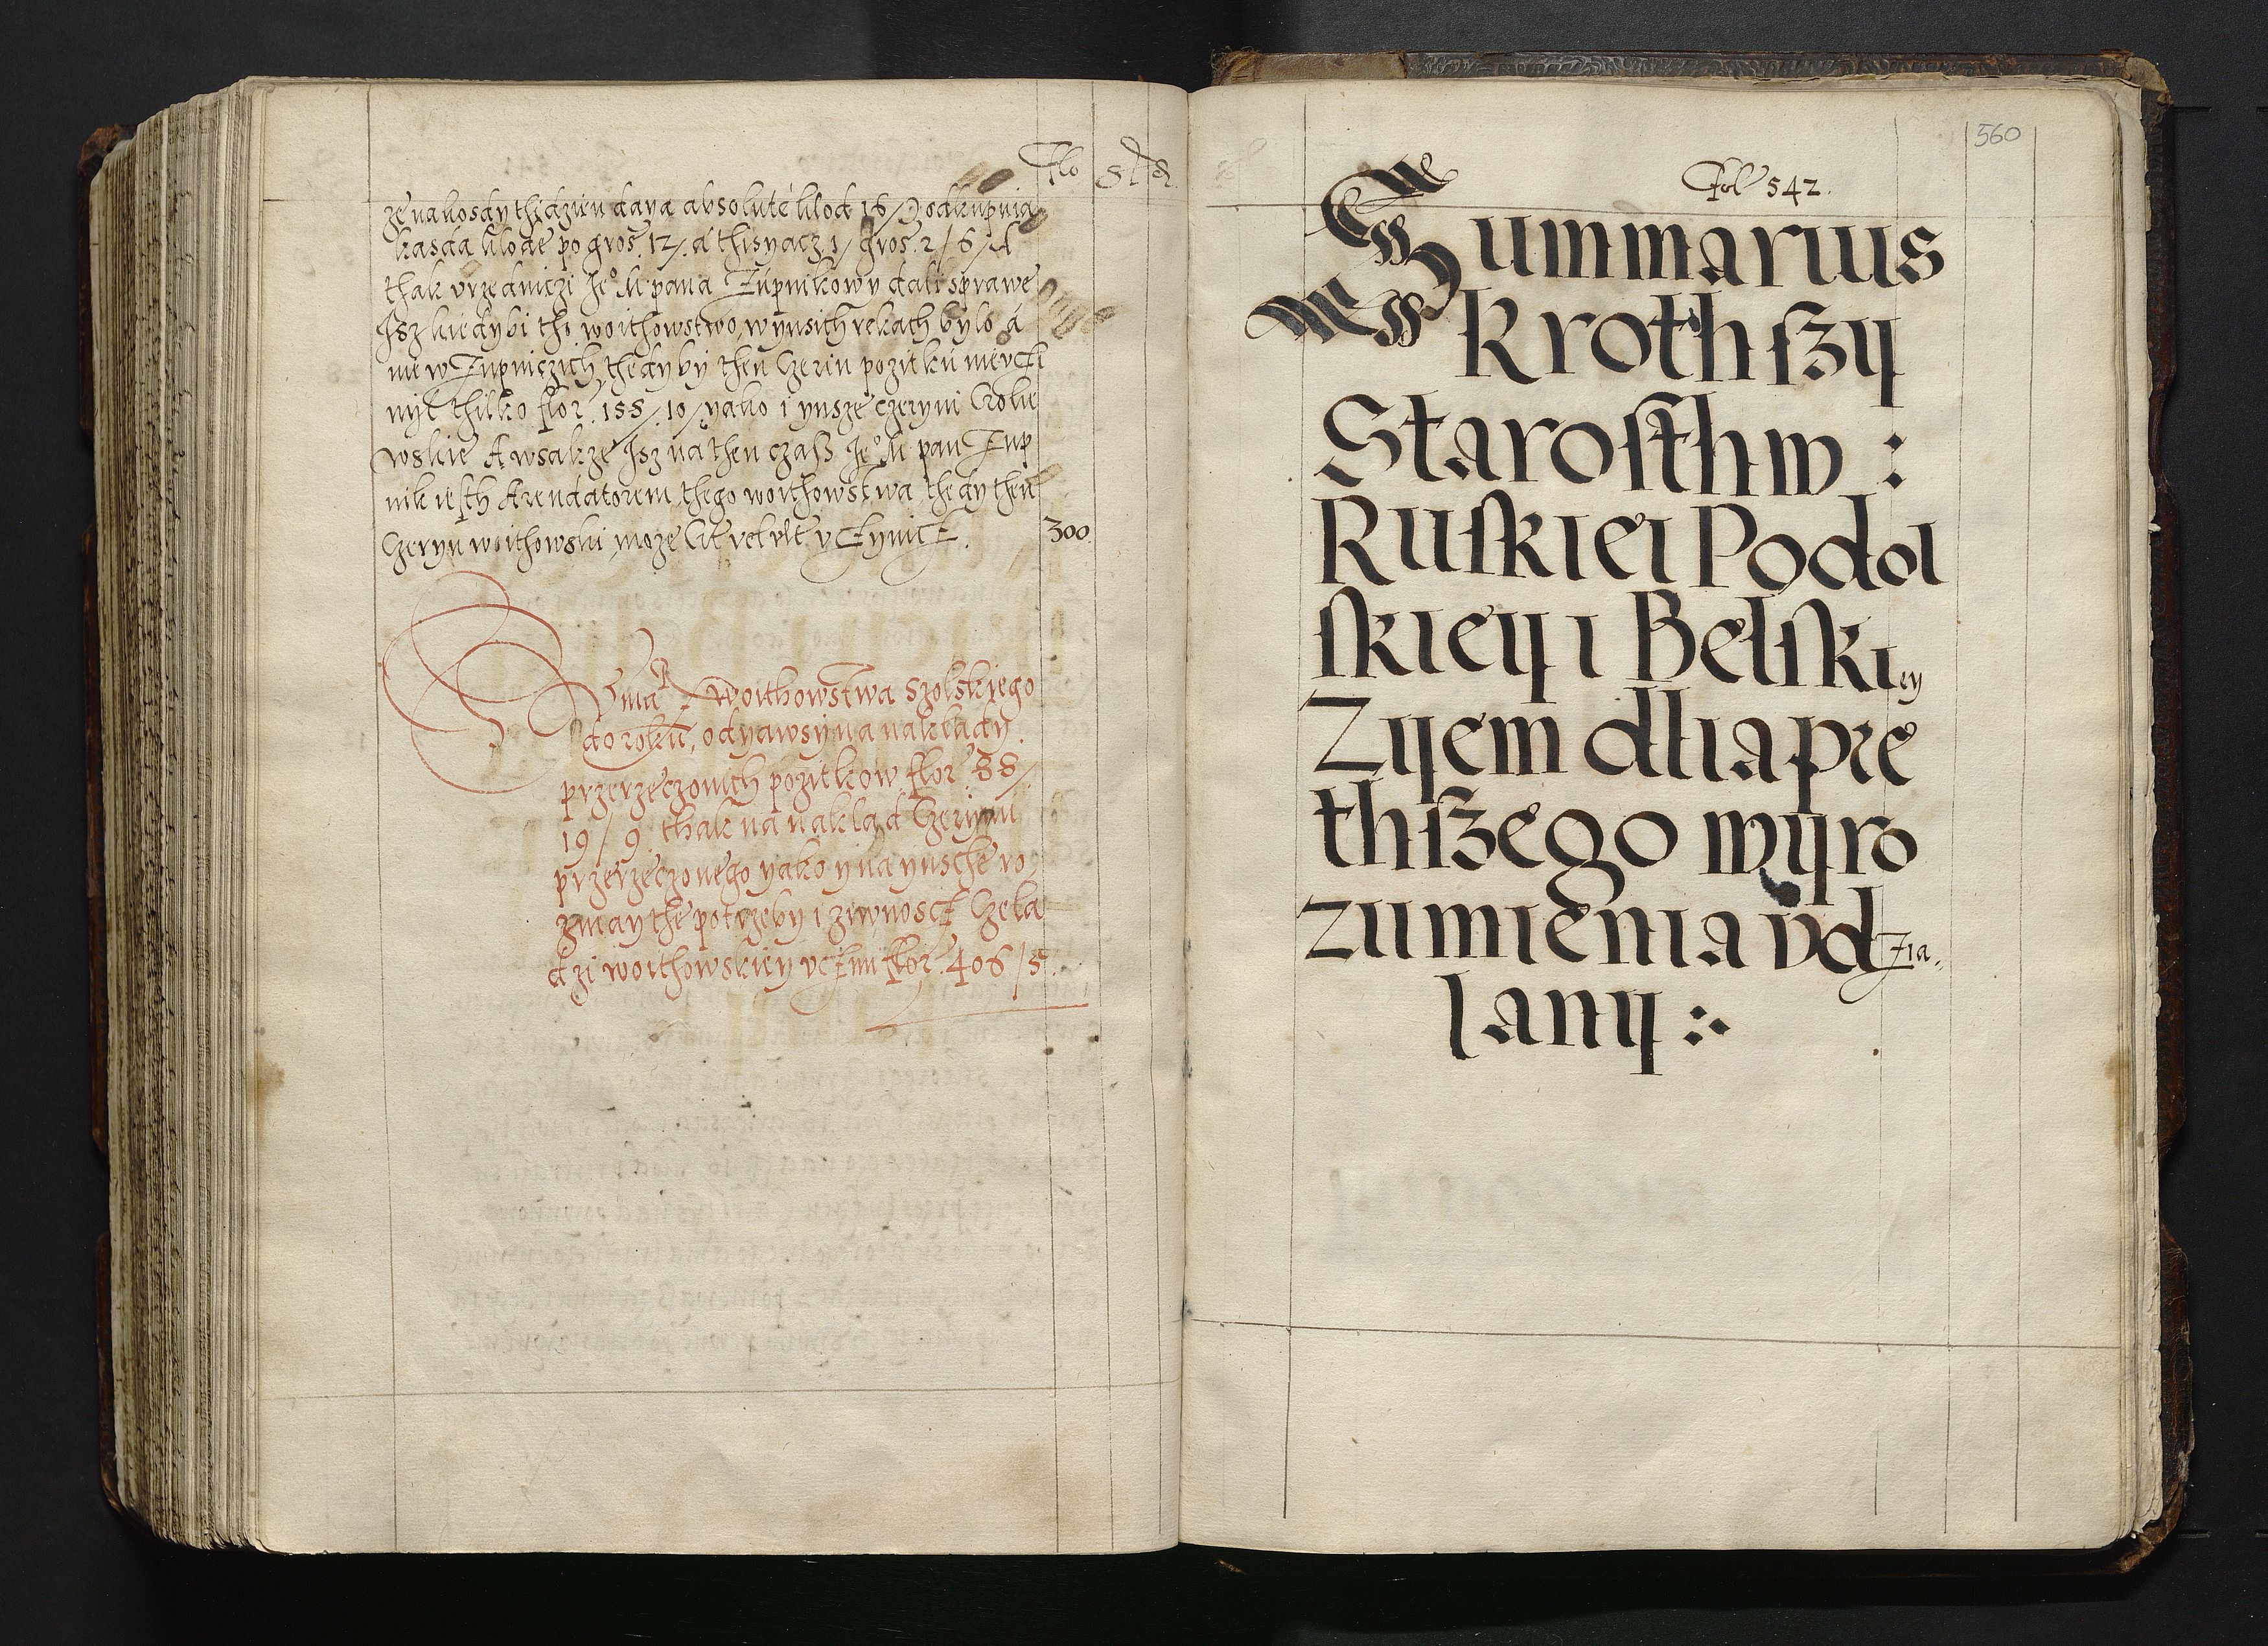 Flo
ze nakosdy thydzien daya absolutè kłod 16/9 odkupnia
kasda kłode po gros. 12/. a thisyacz 1/ gros. 2/6/A
thak vrzedniczi Je° M pana Zupnikowy dali sprawe
Jsz kiedybi tho woithowstwo, wynsich rekach bylo a
nie w Zupniczich, thedy by then Czerin pozitku nie vcz
nyl thilko flor. 155/10/ yako i ynsze czeryni Krole
wskie A wsakze Jsz na then czass Je° M pan Zup
nik iesth Arendatorem, thego woithowstwa thedy then
Czeryn woithowski, moze
300
Suma woithowstwa Szolskiego
do roku, odyawsy na nakłady
przerzeczonich pozitkow flor 88/
19/9 thak na naklad Czerynu
przerzeczonego yako y na ynsche ro
zmaythe potrzeby i ziwnoscz Czela
dzi woithowskiey vczyni flor. 406/5.
560
Fol 542.
Summarius
Krothszy
Starosthw :
Ruskiei Podol
skiey i Belskiey
Zyem dlia pre
thszego wyro
zumienia vdzia
lany :.